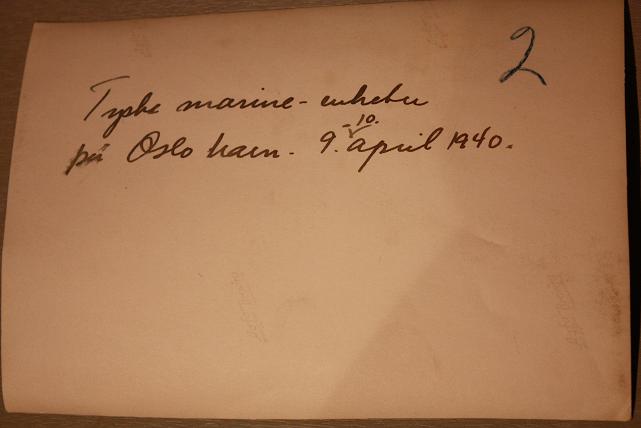 2
Tyske marine-enheter
på Oslo havn. 9.-10. april 1940.